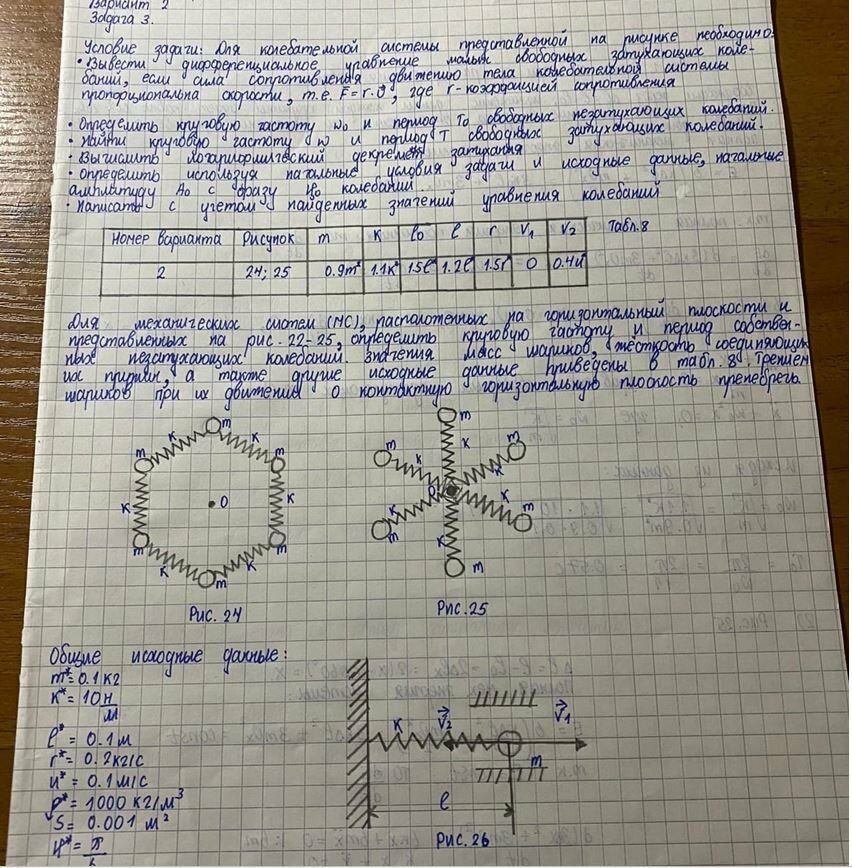 Вариант 2
Задача 3.
Условие задачи: Для колебательной системы представленной на рисунке необходимо:
• Вывести дифференциальное уравнение малых свободных затухающих коле-
баний, если сила сопротивления движению тела колебательной системы
пропорциональна скорости, т.е. F = r·v, где r-коэффициент сопротивления
• Определить круговую частоту ω₀ и период T₀ свободных незатухающих колебаний.
• Найти круговую частоту ω и период T свободных затухающих колебаний.
• Вычислить логарифмический декремент затухания
• Определить используя начальные условия задачи и исходные данные, начальные
амплитуду A₀ с фазу φ₀ колебаний.
• Написать с учетом найденных значений уравнения колебаний
Табл.8
Номер варианта Рисунок m k l₀ l r V₁ V₂
2 24; 25 0.9m* 1.1k* 1.5l* 1.2l* 1.5r* 0 0.4u*
Для механических систем (МС), расположенных на горизонтальный плоскости и
представленных на рис. 22-25, определить круговую частоту и период собствен-
ных незатухающих колебаний. Значения масс шариков, жёсткость соединяющих
их пружин, а также другие исходные данные приведены в табл. 8. Трением
шариков при их движении о контактную горизонтальную плоскость пренебречь.
m k m k m k m k m k m k
O
Рис. 24
m k m k m k m k m k m
O
Рис.25
Общие исходные данные:
m* = 0.1 кг
k* = 10 Н/м
l* = 0.1 м
r* = 0.2 кг/с
u* = 0.1 м/с
ρ* = 1000 кг/м³
S = 0.001 м²
φ* = π
k V₂ V₁
m
l
Рис. 26